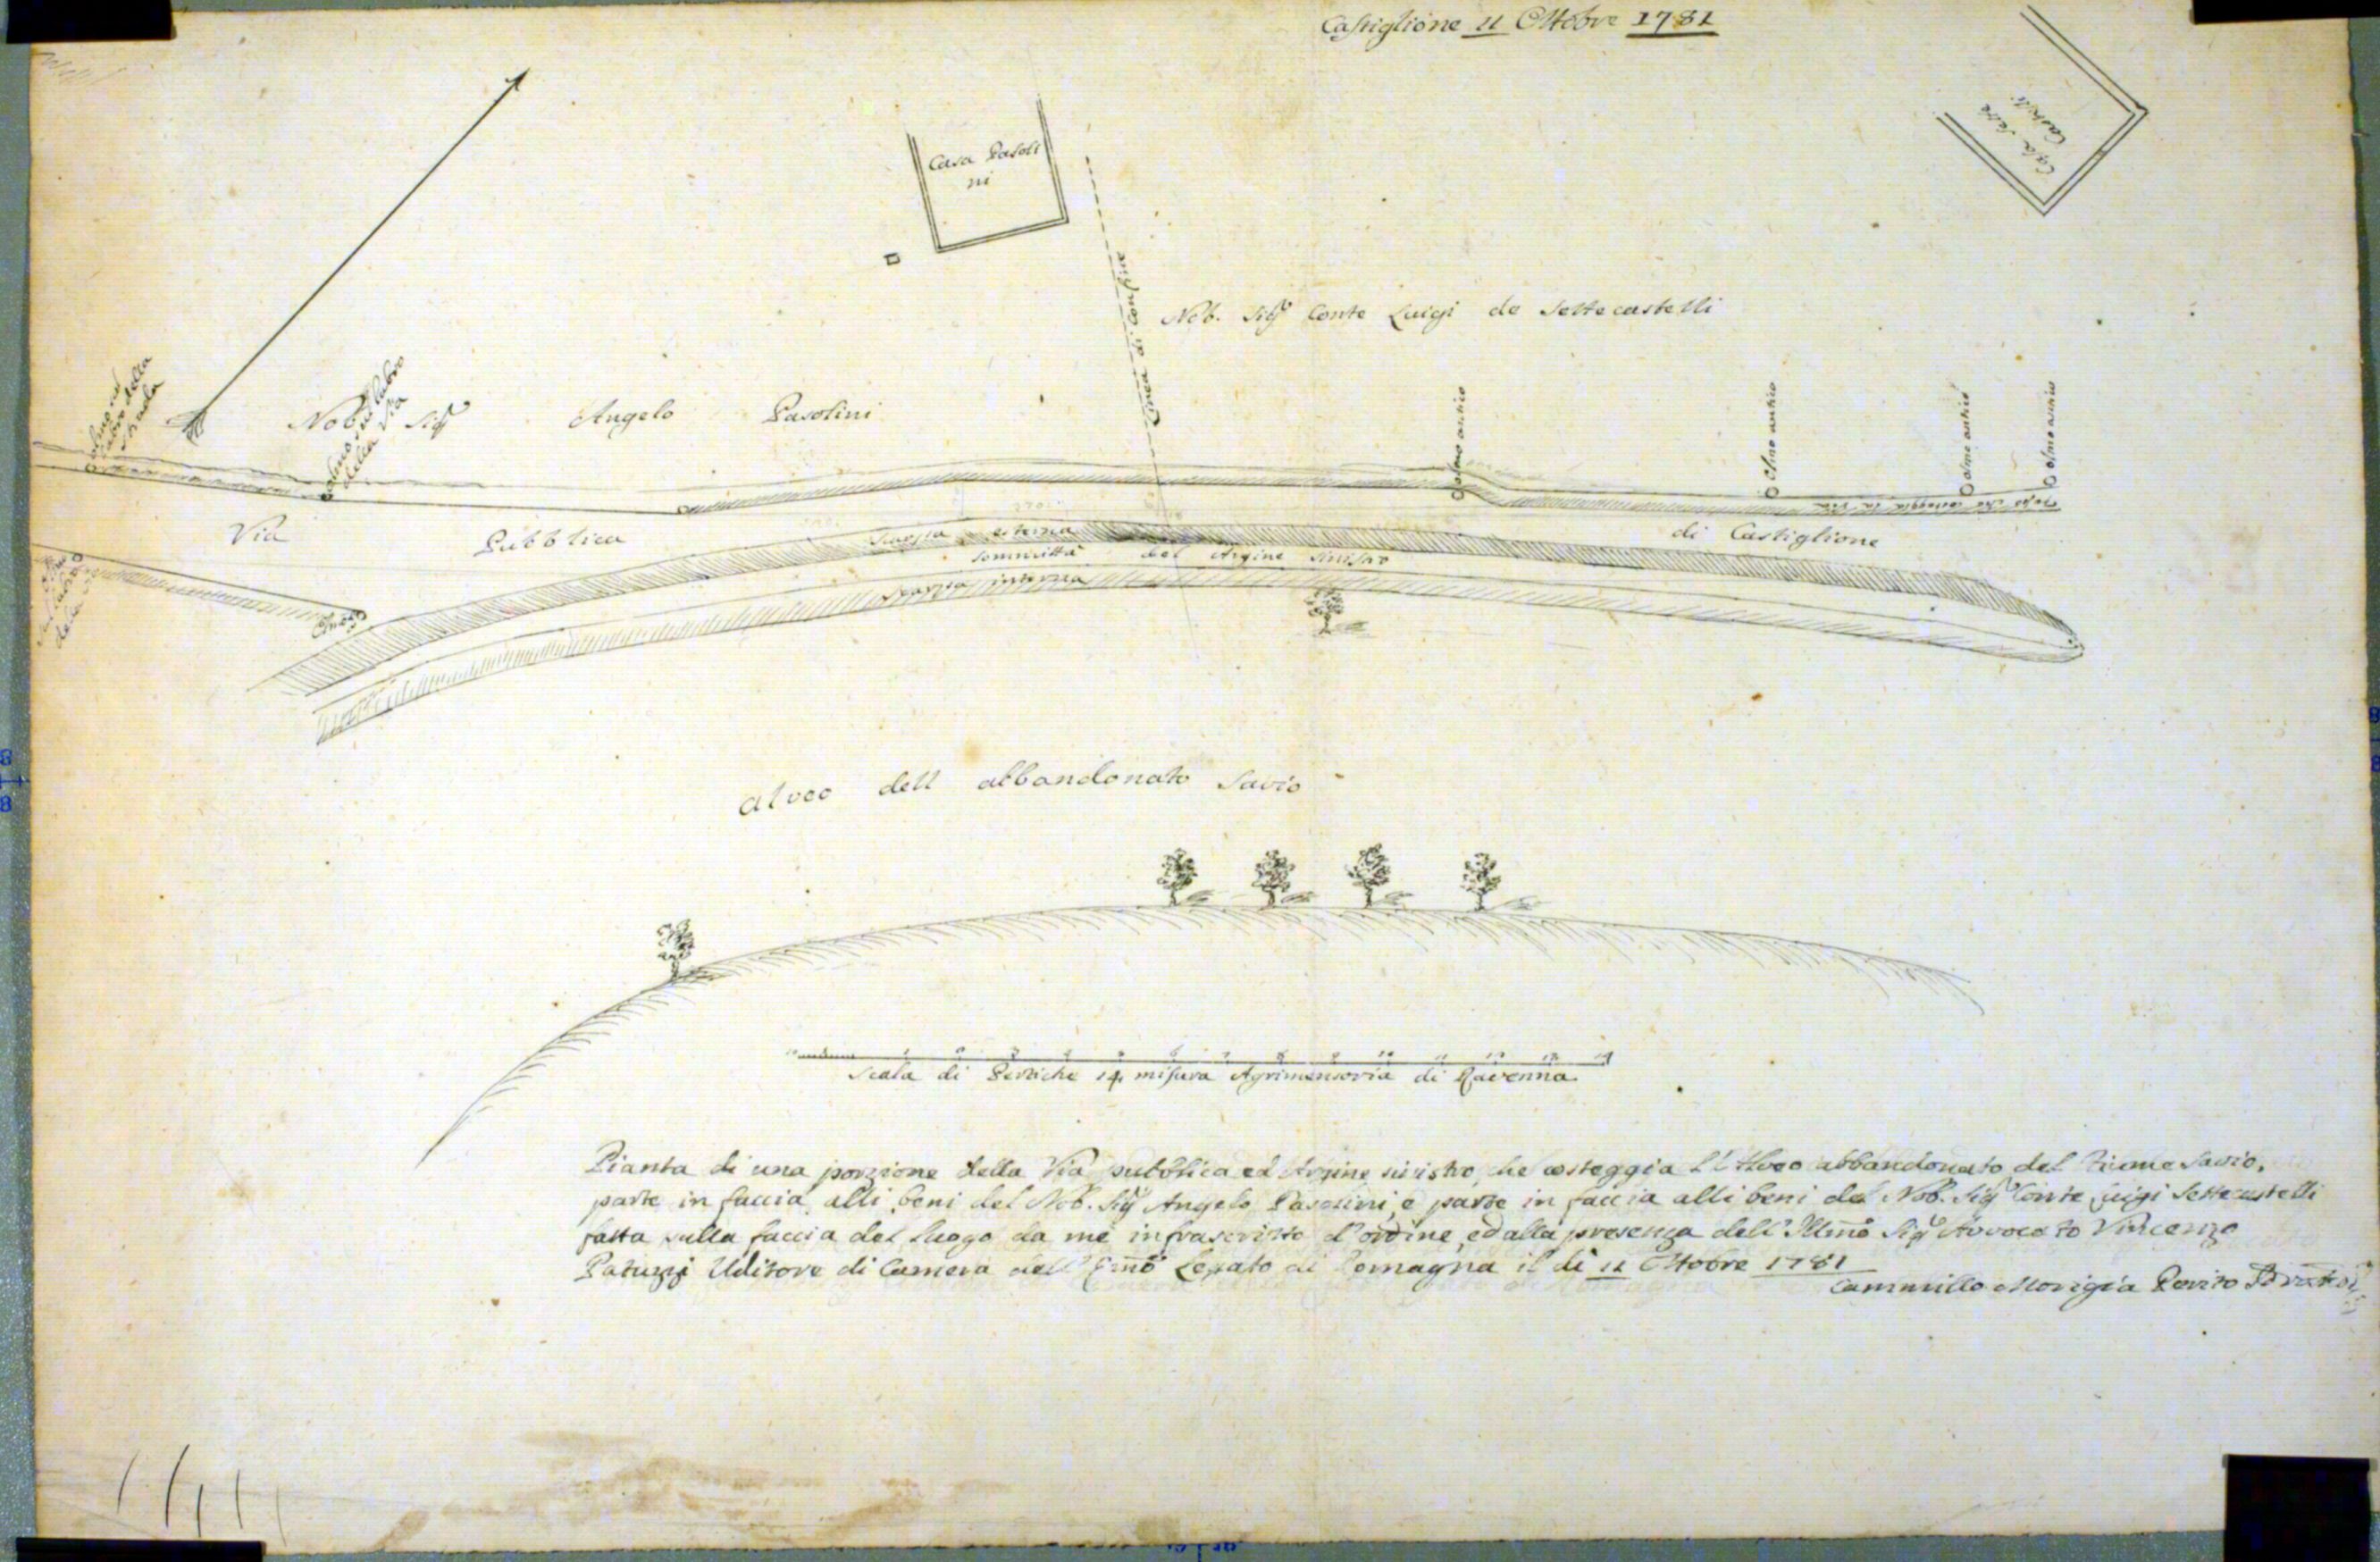 Castiglione 11 Ottobre 1781
Casa Pasoli
ni
Casa Sette
Castelli
Linea di Confine
Nob. Sig.r Conte Luigi de Settecastelli
Nob. Sig.r Angelo Pasolini
olmo sul
labro della
strada
olmo sul labro
della Via
olmo antico
olmo antico
olmo antico
olmo antico
fosso che costeggia la via
Via Pubblica di Castiglione
Scarpa esterna
Sommittà del Argine Sinistro
Scarpa interna
Olmo
alveo dell abbandonato Savio
1 2 3 4 5 6 7 8 9 10 11 12 13 14
Scala di Pertiche 14 misura Agrimensoria di Ravenna
Pianta di una porzione della Via pubblica ed Argine sinistro, che costeggia l'Alveo abbandonato del Fiume Savio,
parte in faccia alli beni del Nob. Sig.r Angelo Pasolini, e parte in faccia alli beni del Nob. Sig.r Conte Luigi Settecastelli
fatta sulla faccia del luogo da me infrascritto d'ordine, ed alla presenza dell' Illmo Sig.r Avvocato Vincenzo
Patuzzi Uditore di Camera dell' Emo Legato di Romagna il dì 11 Ottobre 1781
Cammillo Morigia Perito